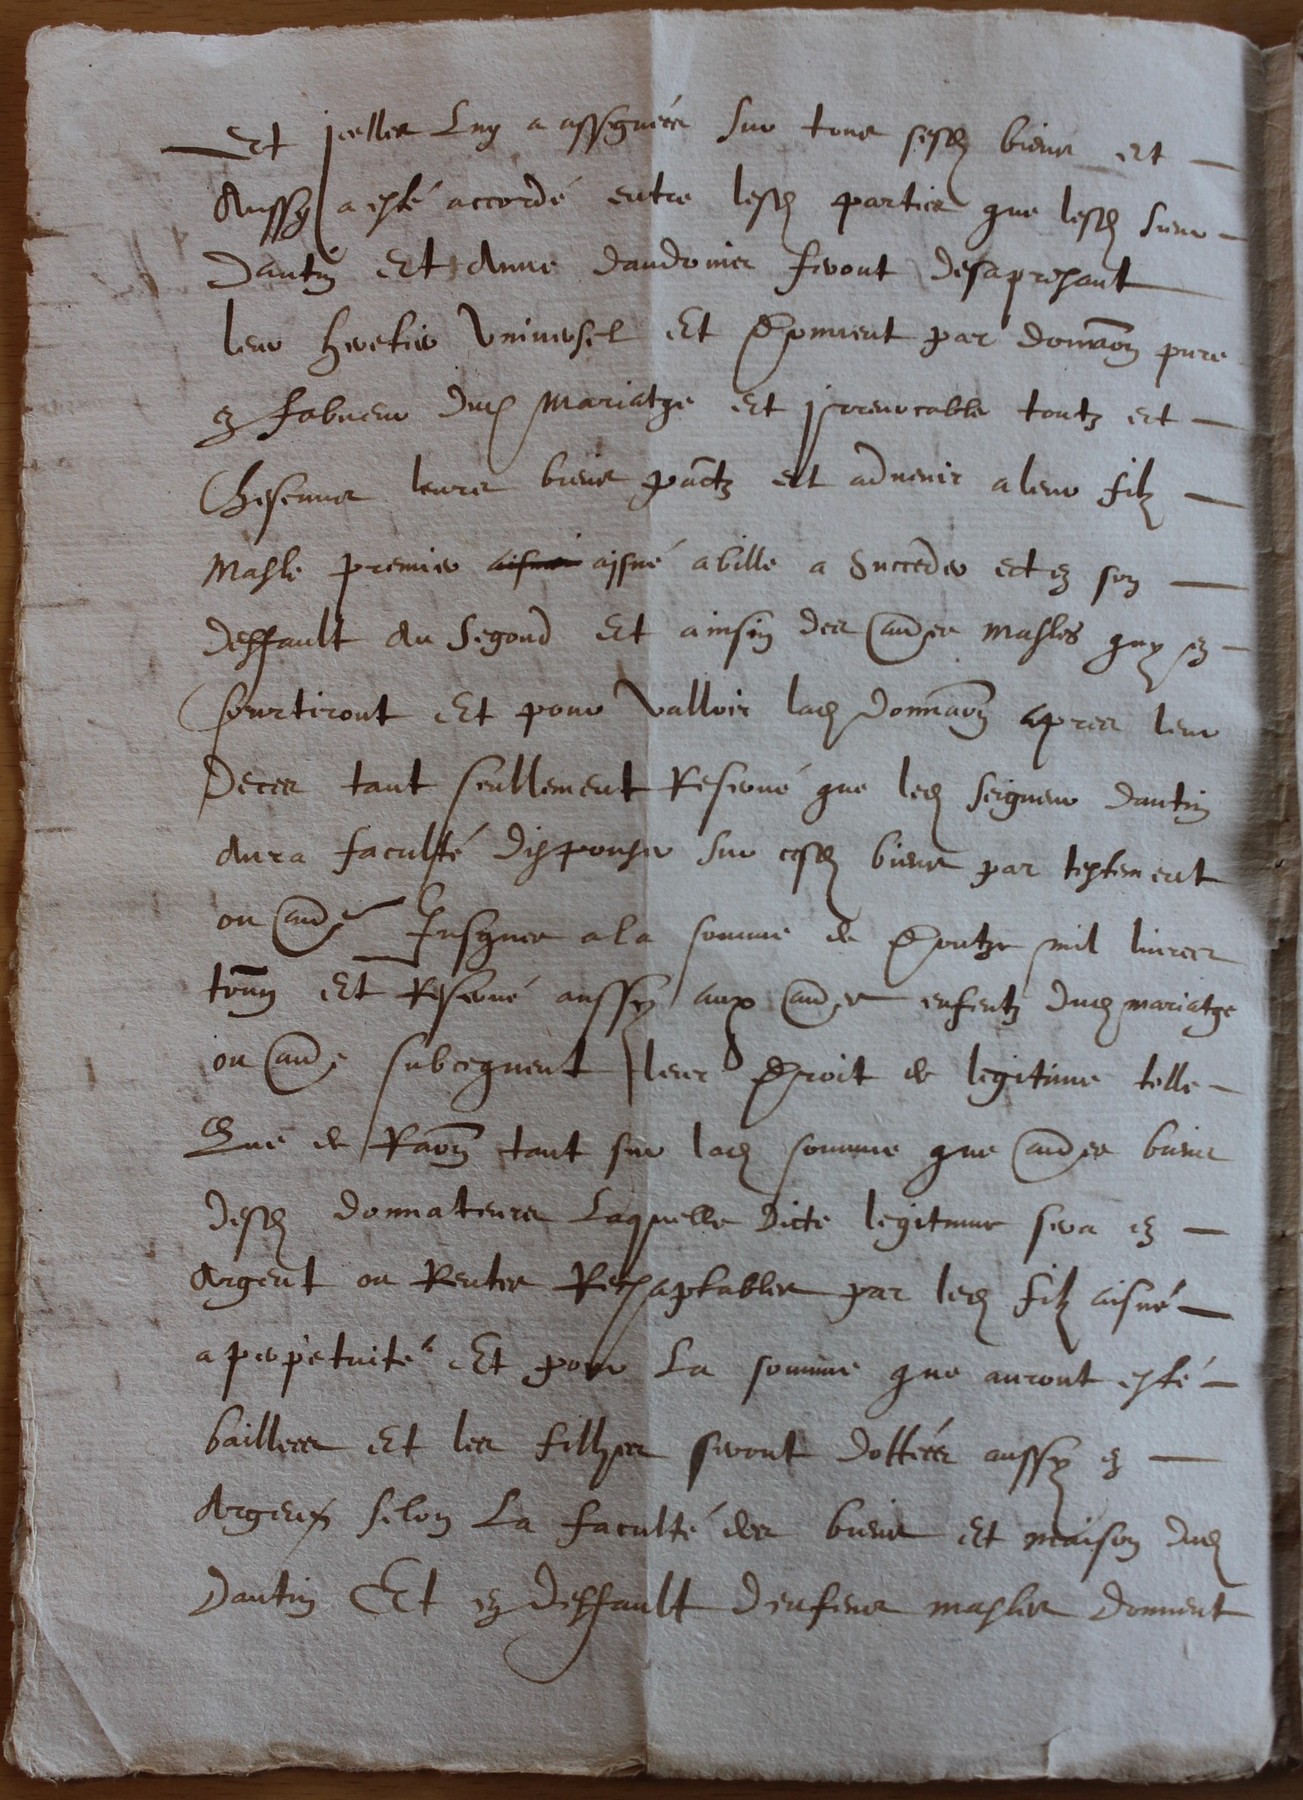 Et jcelles Luy a assignées sur tous sesd biens et
Aussy a esté accordé entre lesd parties que lesd sieur
Dantin Et Anne dandonies feront desapresant
leur heretier Universel Et Donnent par donnaon pure
en fabueur dud Mariatge et jrrevocable toutz et
Chescuns leurs biens pñtz et advenir a leur filz
Masle premier aisné abille a Succeder et en son
deffault au Segond Et ainsin des auces masles quy en
sourtiront Et pour Valloir lad Donnaon apres leur
Deces tant seullement Reservé que led seigneur dantin
Aura faculté dispouser sur cesd biens par testement
ou auē Jusques a la somme de Doutze mil livres
tourn Et Reservé aussy aux auces enfentz dud mariatge
ou auē subcequent leur Droit de legitime telle
Que de Raon tant sur lad somme que auces biens
desd donnateurs Laquelle dicte legitime sera en
Argent ou Rentes Rechaptables par led filz aisné
a perpetuité Et pour La somme que auront esté
baillees Et les filhes seront dottées aussy en
Argent selon La faculté des biens Et maison dud
Dantin Et en deffault denfens masles donnent